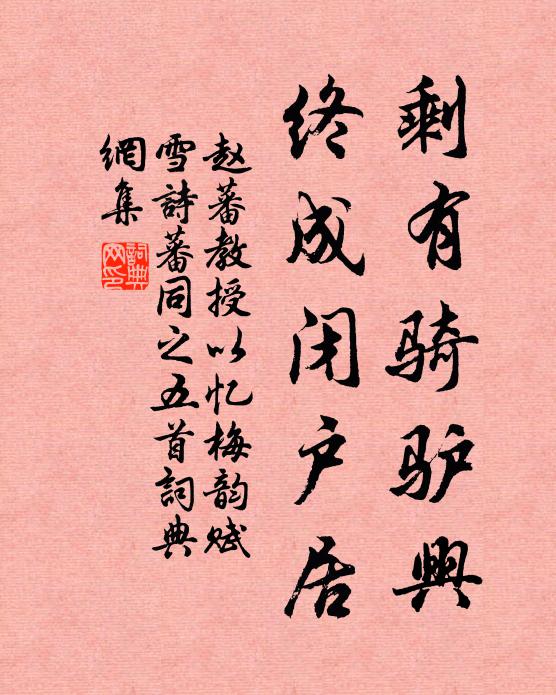 剩有骑驴興
终成闭户居
赵蕃教授以忆梅韵赋
雪詩蕃同之五首詞典
網集
詞典
网印